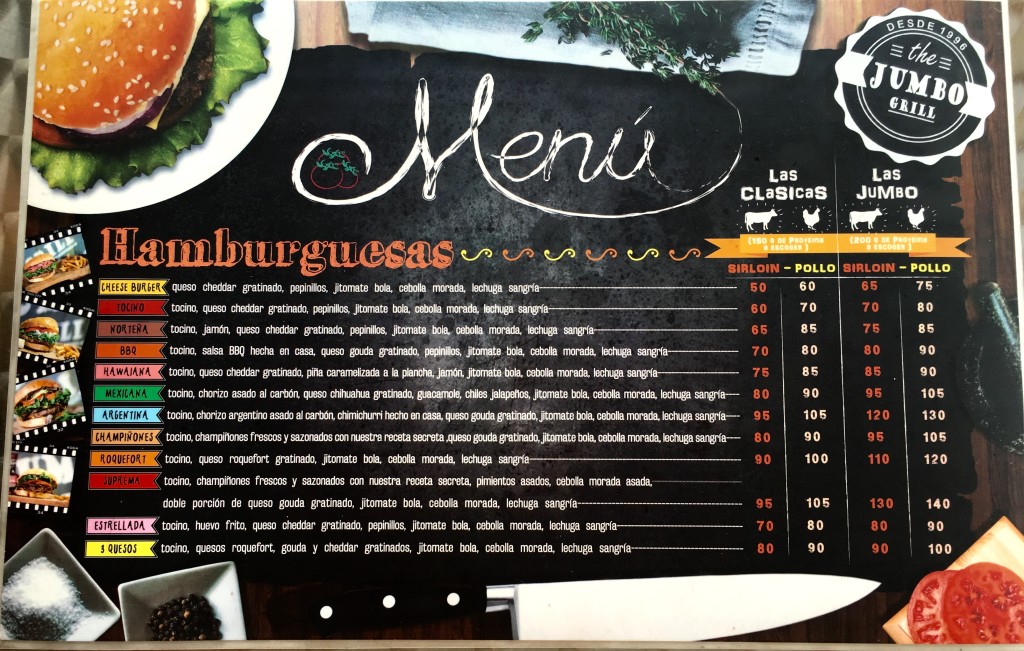 DESDE 1996
the
JUMBO
GRILL
Menú
Las
Clasicas
Las
Jumbo
(150 g de Proteina
a escoger)
(200 g de Proteina
a escoger)
Hamburguesas
SIRLOIN - POLLO SIRLOIN - POLLO
CHEESE BURGER queso cheddar gratinado, pepinillos, jitomate bola, cebolla morada, lechuga sangría 50 60 65 75
TOCINO tocino, queso cheddar gratinado, pepinillos, jitomate bola, cebolla morada, lechuga sangría 60 70 70 80
NORTEÑA tocino, jamón, queso cheddar gratinado, pepinillos, jitomate bola, cebolla morada, lechuga sangría 65 85 75 85
BBQ tocino, salsa BBQ hecha en casa, queso gouda gratinado, pepinillos, jitomate bola, cebolla morada, lechuga sangría 70 80 80 90
HAWAIANA tocino, queso cheddar gratinado, piña caramelizada a la plancha, jamón, jitomate bola, cebolla morada, lechuga sangría 75 85 85 90
MEXICANA tocino, chorizo asado al carbón, queso chihuahua gratinado, guacamole, chiles jalapeños, jitomate bola, cebolla morada, lechuga sangría 80 90 95 105
ARGENTINA tocino, chorizo argentino asado al carbón, chimichurri hecho en casa, queso gouda gratinado, jitomate bola, cebolla morada, lechuga sangría 95 105 120 130
CHAMPIÑONES tocino, champiñones frescos y sazonados con nuestra receta secreta ,queso gouda gratinado, jitomate bola, cebolla morada, lechuga sangría 80 90 95 105
ROQUEFORT tocino, queso roquefort gratinado, jitomate bola, cebolla morada, lechuga sangría 90 100 110 120
SUPREMA tocino, champiñones frescos y sazonados con nuestra receta secreta, pimientos asados, cebolla morada asada,
doble porción de queso gouda gratinado, jitomate bola, cebolla morada, lechuga sangría 95 105 130 140
ESTRELLADA tocino, huevo frito, queso cheddar gratinado, pepinillos, jitomate bola, cebolla morada, lechuga sangría 70 80 80 90
3 QUESOS tocino, quesos roquefort, gouda y cheddar gratinados, jitomate bola, cebolla morada, lechuga sangría 80 90 90 100